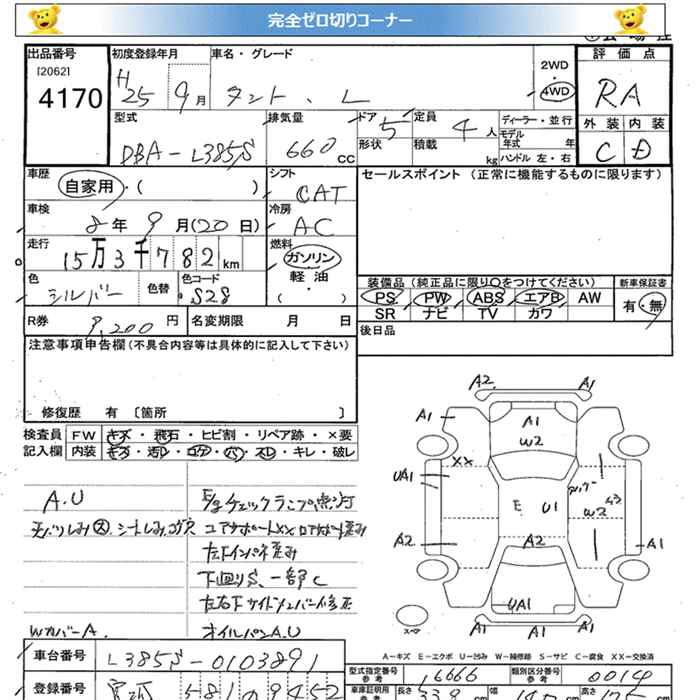 完全ゼロ切りコーナー
出品番号 初度登録年月 車名・グレード 2WD 評価点
[2062]
4170 H25 9月 タント、L 4WD RA
型式 排気量 ドア 定員 ディーラー・並行 外装 内装
形状 積載 モデル年式 年
DBA-L385S 660cc 5 4人 kg ハンドル 左・右 C D
車歴 シフト セールスポイント(正常に機能するものに限ります)
自家用・( ) CAT
車検 冷房
8年9月(20日) AC
走行 燃料
15万3千782km ガソリン
色 色替 色コード 軽・油
シルバー S28 ( )
装備品(純正品に限り○をつけてください) 新車保証書
PS PW ABS エアB AW 有・無
SR ナビ TV カワ
R券 9,200円 名変期限 月 日 後日品
注意事項申告欄(不具合内容等は具体的に記入して下さい)
修復歴 有〔箇所 〕
検査員 FW キズ・飛石・ヒビ割・リペア跡・×要
記入欄 内装 キズ・汚レ・コゲ・穴・スレ・キレ・破レ
A.U
E/gチェックランプ常灯
天バリしみ大、シートしみ、コゲ穴
コアサポートXX ロアサポート歪み
左下インパネ歪み
下廻りS、一部C
左右下サイドメンバー修正
Wカバー A. オイルパンA.U
A2 A1
A1 A1
W2
XX
UA1
E U1
W2
A2 A2 A1
UA1
スペア
A1 A1 A1
A-キズ E-エクボ U-凹み W-補修跡 S-サビ C-腐食 XX-交換済
車台番号 L385S-0103891
型式指定番号 参考 16666 類別区分番号 参考 0014
登録番号 581 9452
車庫証明用 参考 長さ 339cm 幅 147cm 高さ 175cm